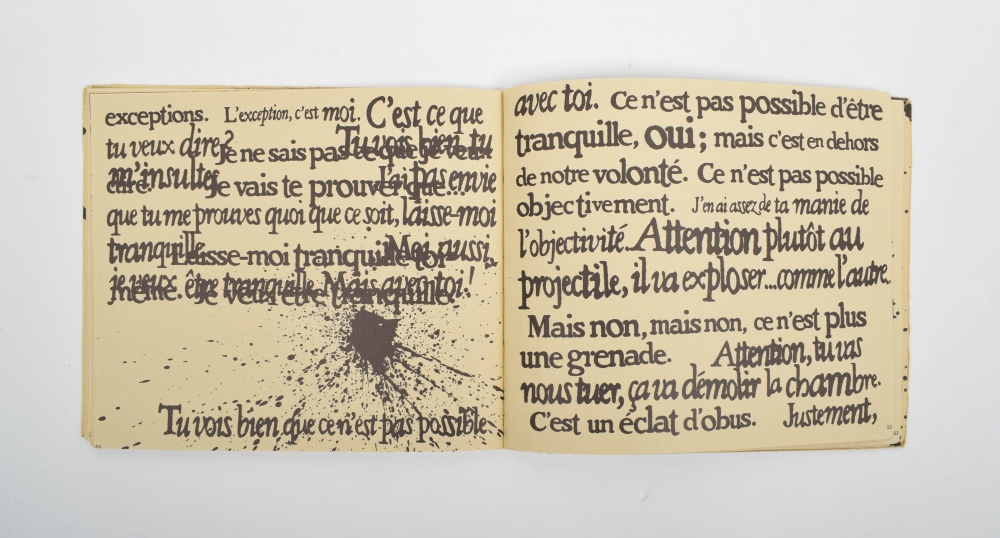 exceptions. L'exception, c'est moi. C'est ce que
tu veux dire? Tu vois bien, tu
Je ne sais pas ce que je veux
m'insultes. J'ai pas envie
dire. Je vais te prouver que...
que tu me prouves quoi que ce soit, laisse-moi
tranquille. Moi aussi,
Laisse-moi tranquille toi-
je veux être tranquille. Mais avec toi !
même. Je veux être tranquille.
Tu vois bien que ce n'est pas possible
avec toi. Ce n'est pas possible d'être
tranquille, oui ; mais c'est en dehors
de notre volonté. Ce n'est pas possible
objectivement. J'en ai assez de ta manie de
l'objectivité. Attention plutôt au
projectile, il va exploser...comme l'autre.
Mais non, mais non, ce n'est plus
une grenade. Attention, tu vas
nous tuer, ça va démolir la chambre.
C'est un éclat d'obus. Justement,